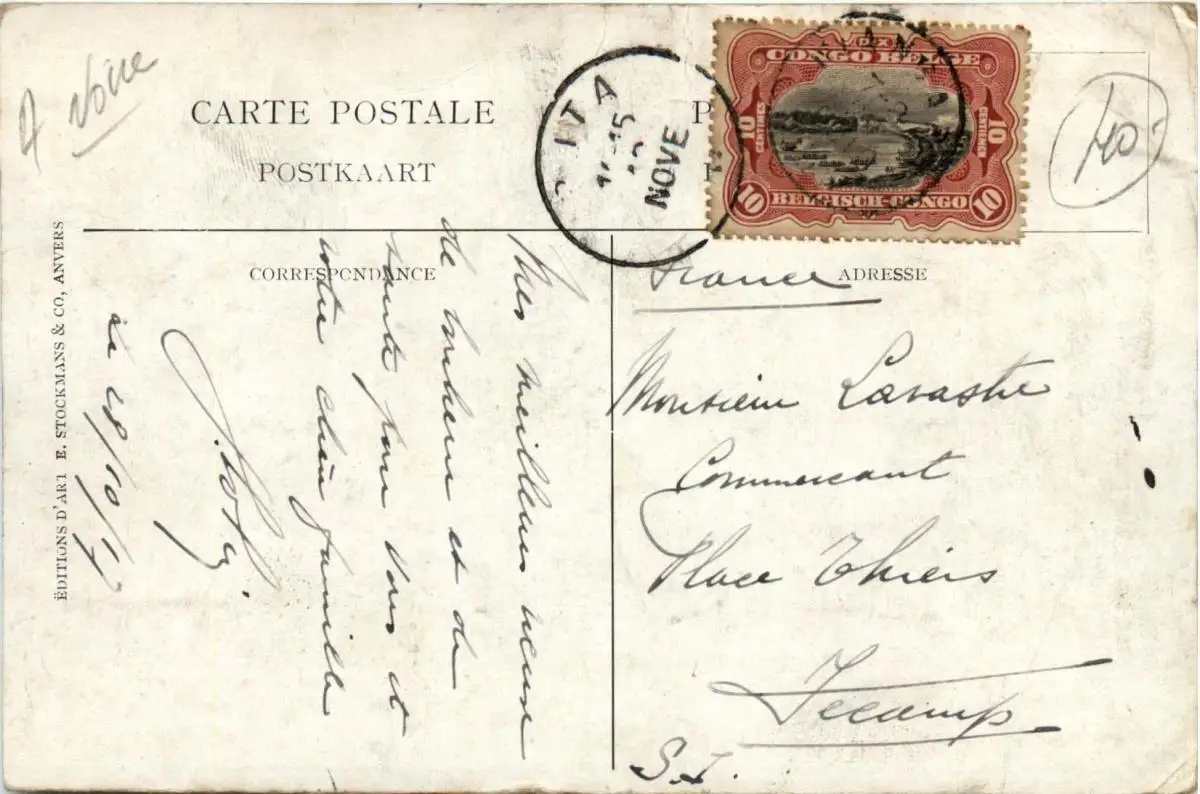 CARTE POSTALE
POSTKAART
CONGO BELGE
10 CENTIMES
10
10
10
BELGISCH-CONGO
NOVE
40
CORRESPONDANCE
ADRESSE
ÉDITIONS D'ART E. STOCKMANS & CO, ANVERS
Mes meilleurs
de bonheur et de
santé pour vous et
votre chère famille
France
Monsieur Lavastre
Commercant
Place Thiers
Fecamp
S. I.